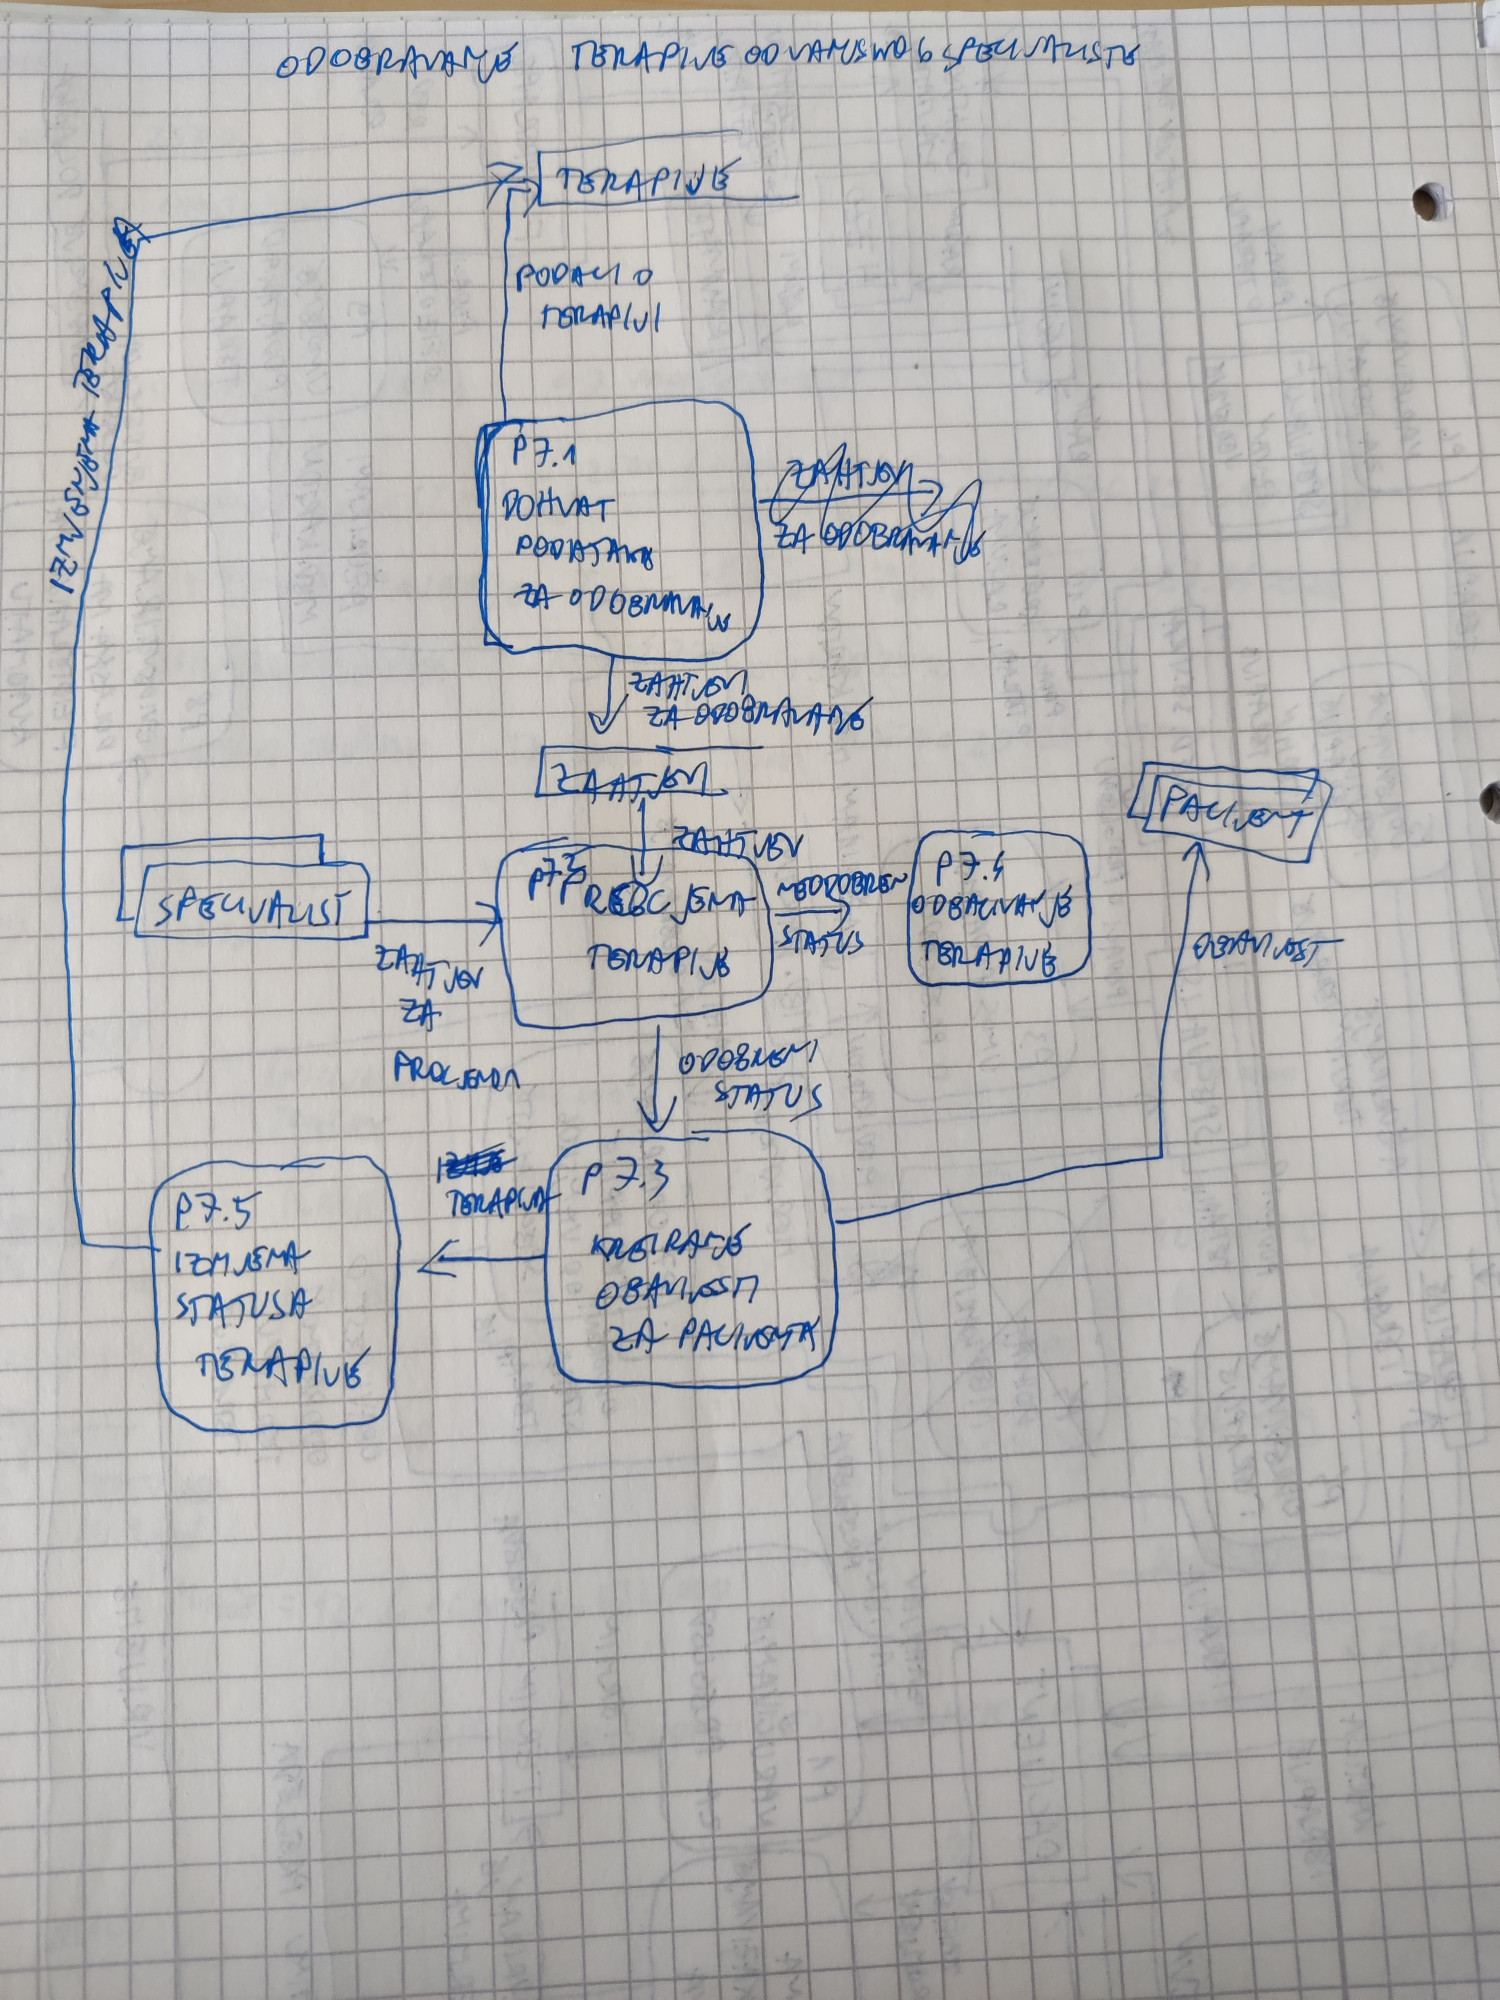 ODOBRAVANJE TERAPIJE OD VANJSKOG SPECIJALISTE
TERAPIJE
PODACI O
TERAPIJI
IZMIJENJENA TERAPIJE
P7.1
DOHVAT
PODATAKA
ZA ODOBRAVANJE
ZAHTJEV
ZA ODOBRAVANJE
ZAHTJEV
ZA ODOBRAVANJE
ZAHTJEVI
PACIJENT
ZAHTJEV
SPECIJALIST
P7.2
TERAPIJE
NEODOBREN
STATUS
P7.4
ODBACIVANJE
TERAPIJE
OBAVIJEST
ZAHTJEV
ZA
PROCJENOM
ODOBRENI
STATUS
TERAPIJA
P7.3
KREIRANJE
OBAVIJESTI
ZA PACIJENTA
P7.5
IZMJENA
STATUSA
TERAPIJE